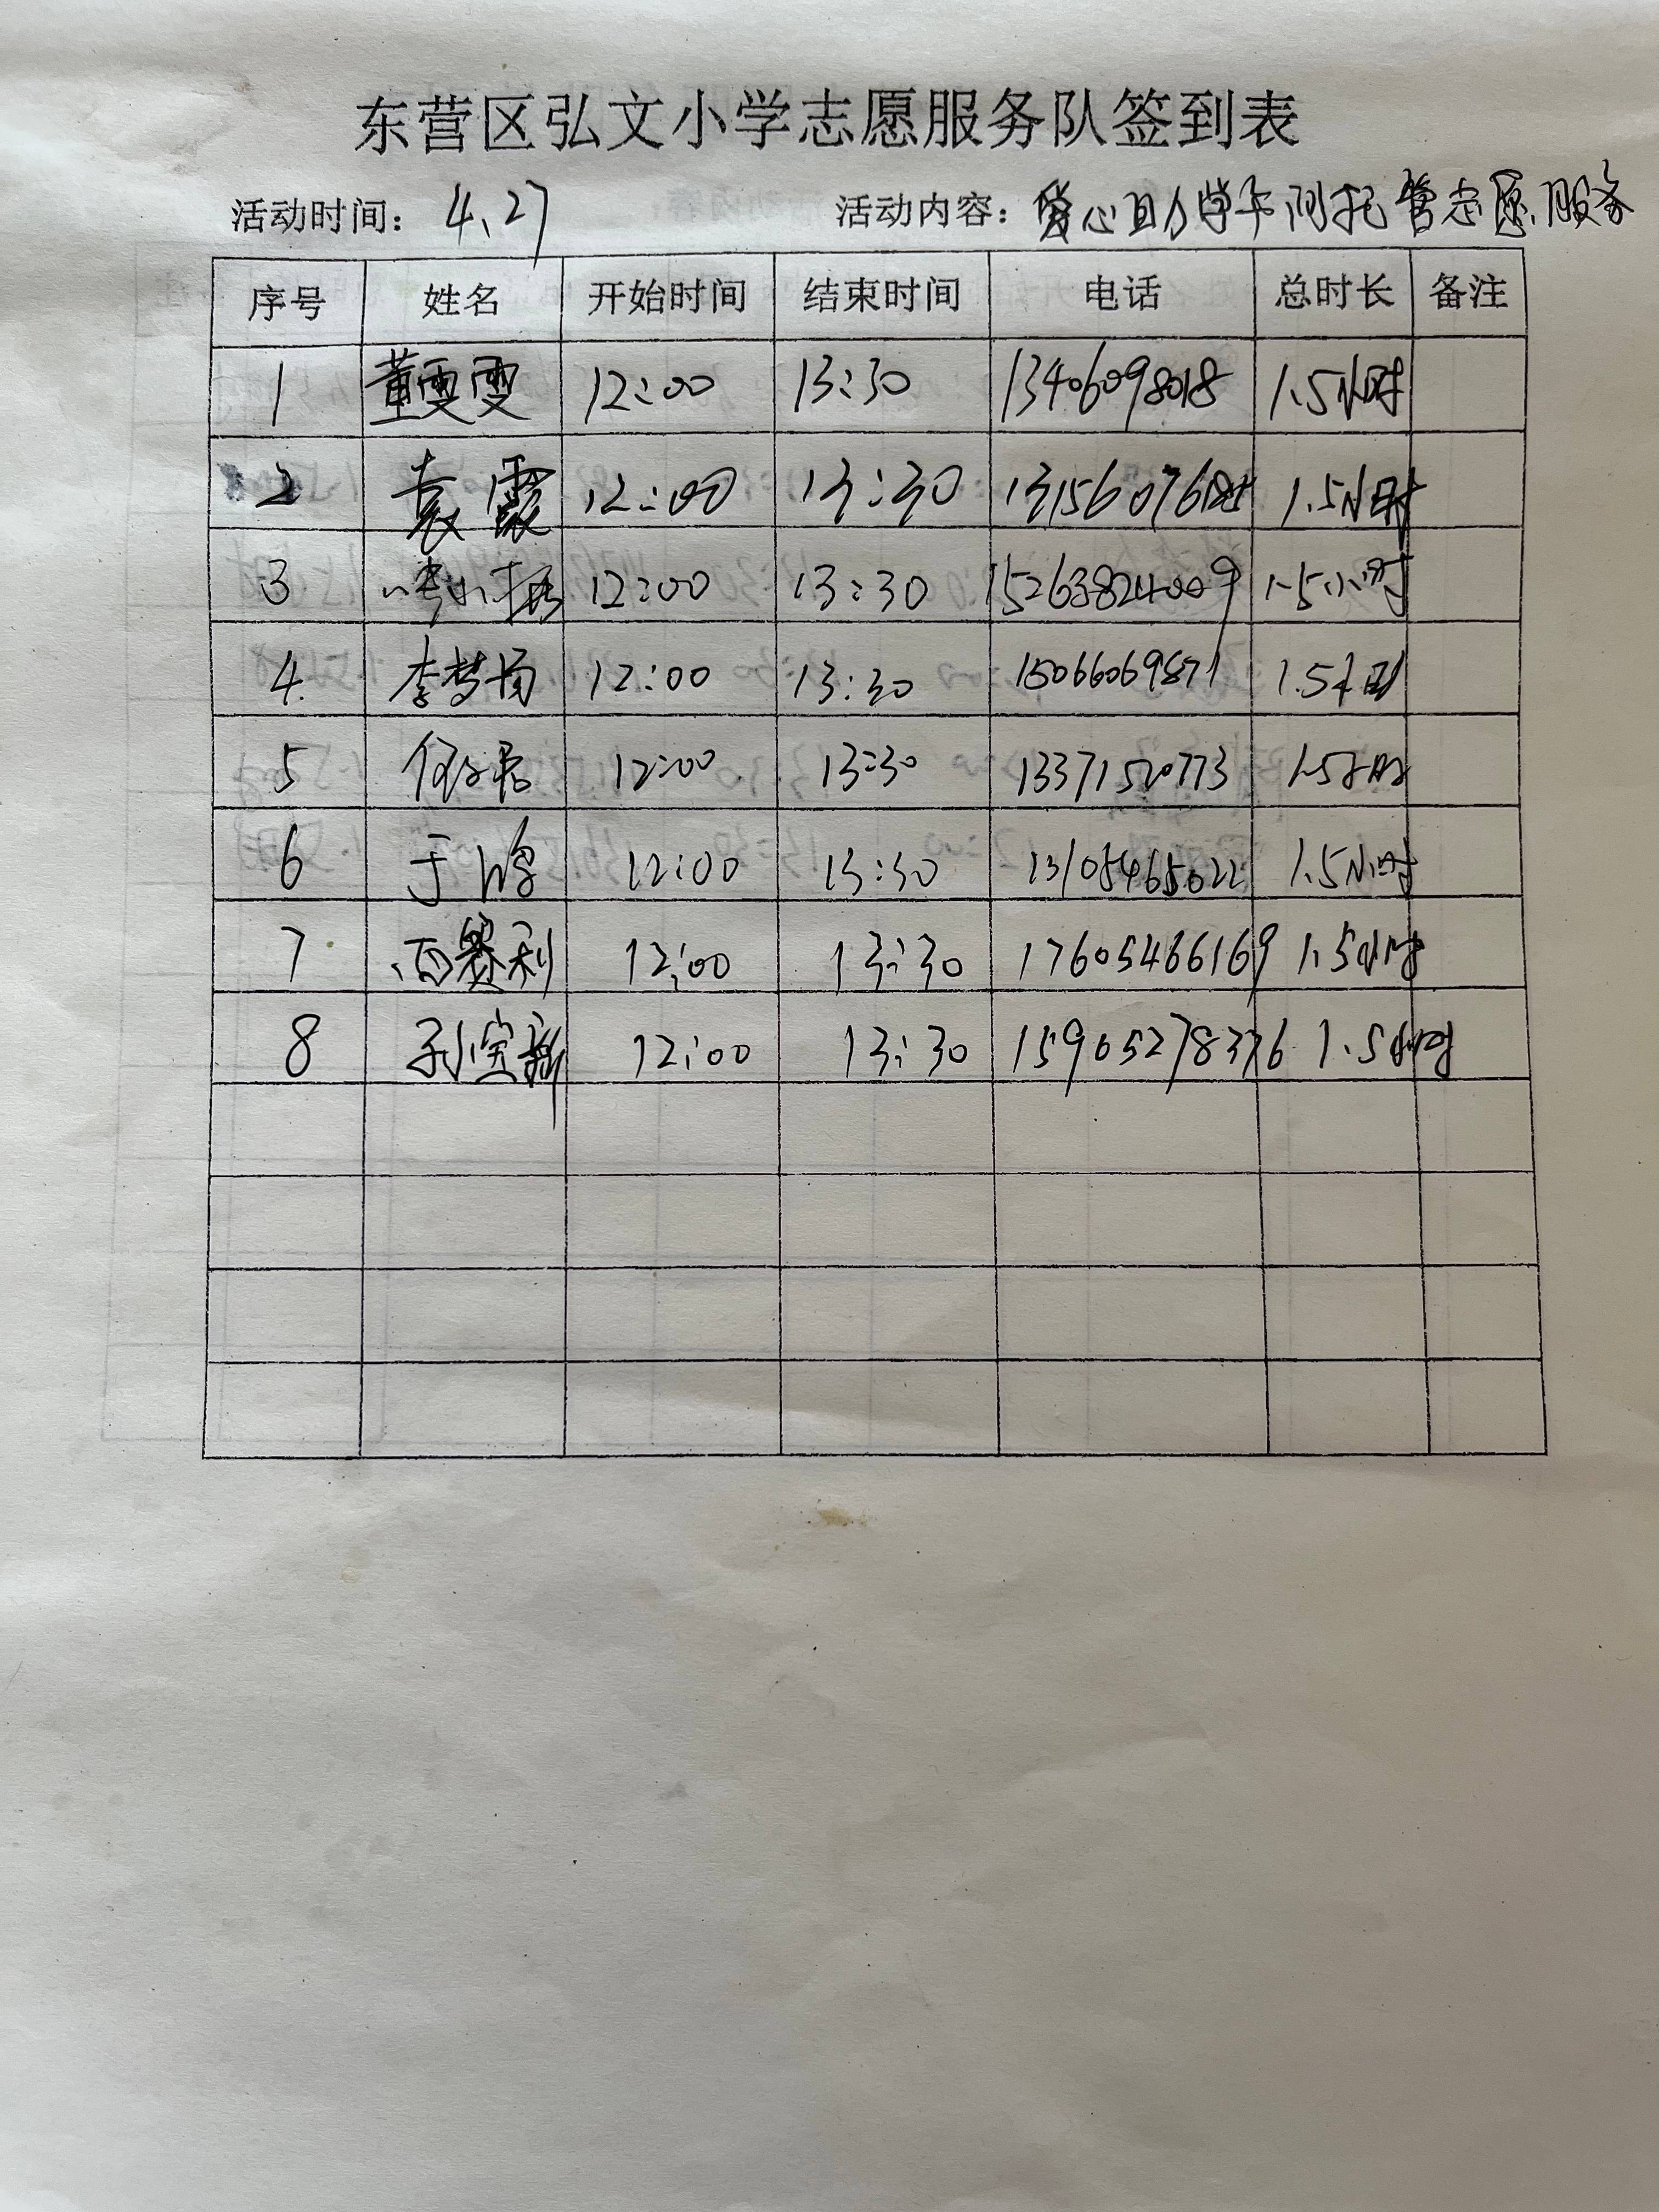 东营区弘文小学志愿服务队签到表
活动时间: 4.27 活动内容: 爱心助学午间托管志愿服务
序号 姓名 开始时间 结束时间 电话 总时长 备注
1 董雯雯 12:00 13:30 13406098018 1.5小时
2 袁霞 12:00 13:30 1.5小时
3 12:00 13:30 15263824009 1.5小时
4. 李梦 12:00 13:30 15066069871 1.5小时
5 12:00 13:30 13371520773 1.5小时
6 于 12:00 13:30 13105465022 1.5小时
7 利 12:00 13:30 17605466169 1.5小时
8 孙宝新 12:00 13:30 15905278376 1.5小时